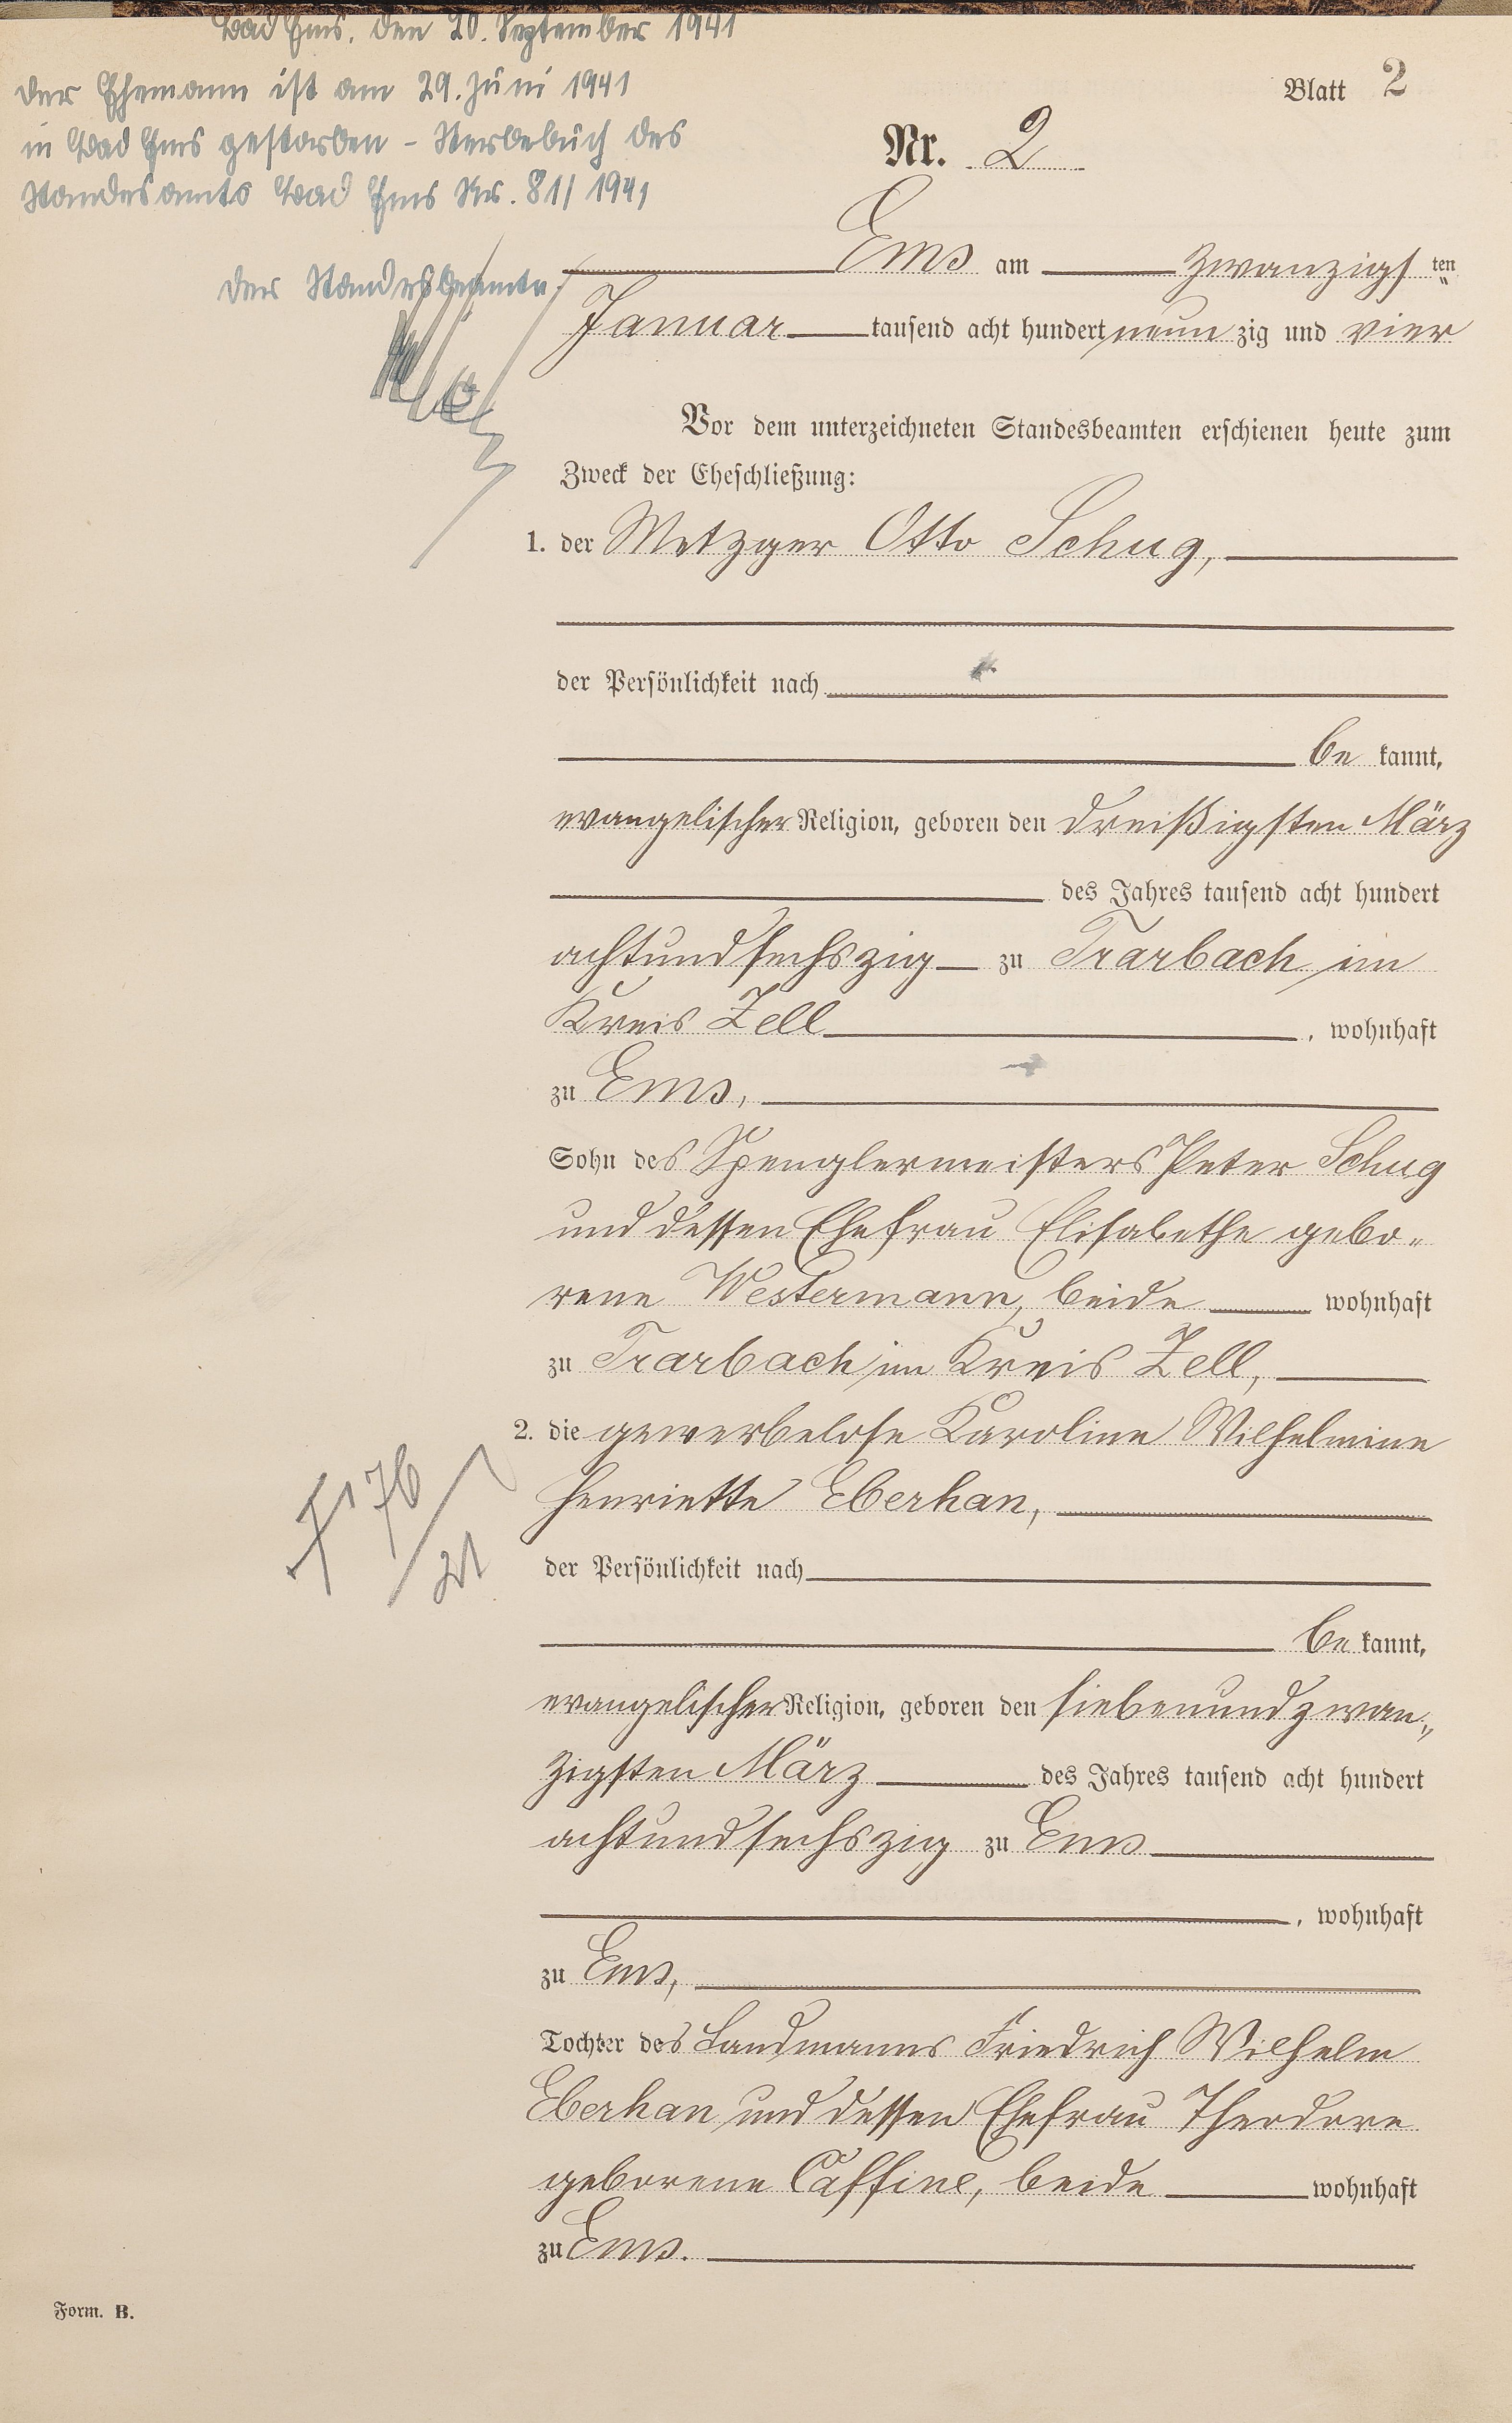 Bad Ems, den 20. September 1941
Der Ehemann ist am 29. Juni 1941
in Bad Ems gestorben - Sterbebuch des
Standesamts Bad Ems Nr. 81/1941
Der Standesbeamte
Blatt 2
Nr. 2
Ems am zwanzigsten
Januar tausend acht hundert neunzig und vier
Vor dem unterzeichneten Standesbeamten erschienen heute zum
Zweck der Eheschließung:
1. der Metzger Otto Schug,
der Persönlichkeit nach
bekannt,
evangelischer Religion, geboren den dreißigsten März
des Jahres tausend acht hundert
achtundsechszig zu Trarbach im
Kreis Zell, wohnhaft
zu Ems,
Sohn des Spenglermeisters Peter Schug
und dessen Ehefrau Elisabethe gebo-
rene Westermann, beide wohnhaft
zu Trarbach im Kreis Zell,
2. die gewerbelose Karoline Wilhelmine
Henriette Eberhan,
† 76/21
der Persönlichkeit nach
bekannt,
evangelischer Religion, geboren den siebenundzwan-
zigsten März des Jahres tausend acht hundert
achtundsechszig zu Ems
, wohnhaft
zu Ems,
Tochter des Landmanns Friedrich Wilhelm
Eberhan und dessen Ehefrau Theodore
geborene Caffine, beide wohnhaft
zu Ems.
Form. B.